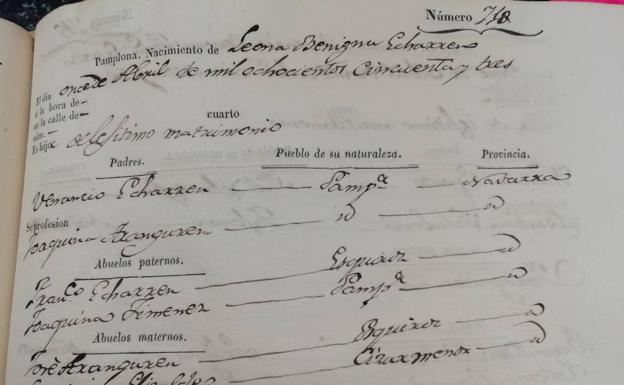 Número 718
Pamplona. Nacimiento de Leona Benigna Echarren
El dia once de Abril de mil ochocientos cincuenta y tres
á la hora de
en la calle de
núm. cuarto
Es hija de lesitimo matrimonio
Padres. Pueblo de su naturaleza. Provincia.
Venancio Echarren Pampª Navarra
Su profesion
Joaquina Aranguren d d
Abuelos paternos.
Franco Echarren Esquiroz d
Joaquina Jimenez Pampª d
Abuelos maternos.
José Aranguren Esquiroz d
Cizurmenor d